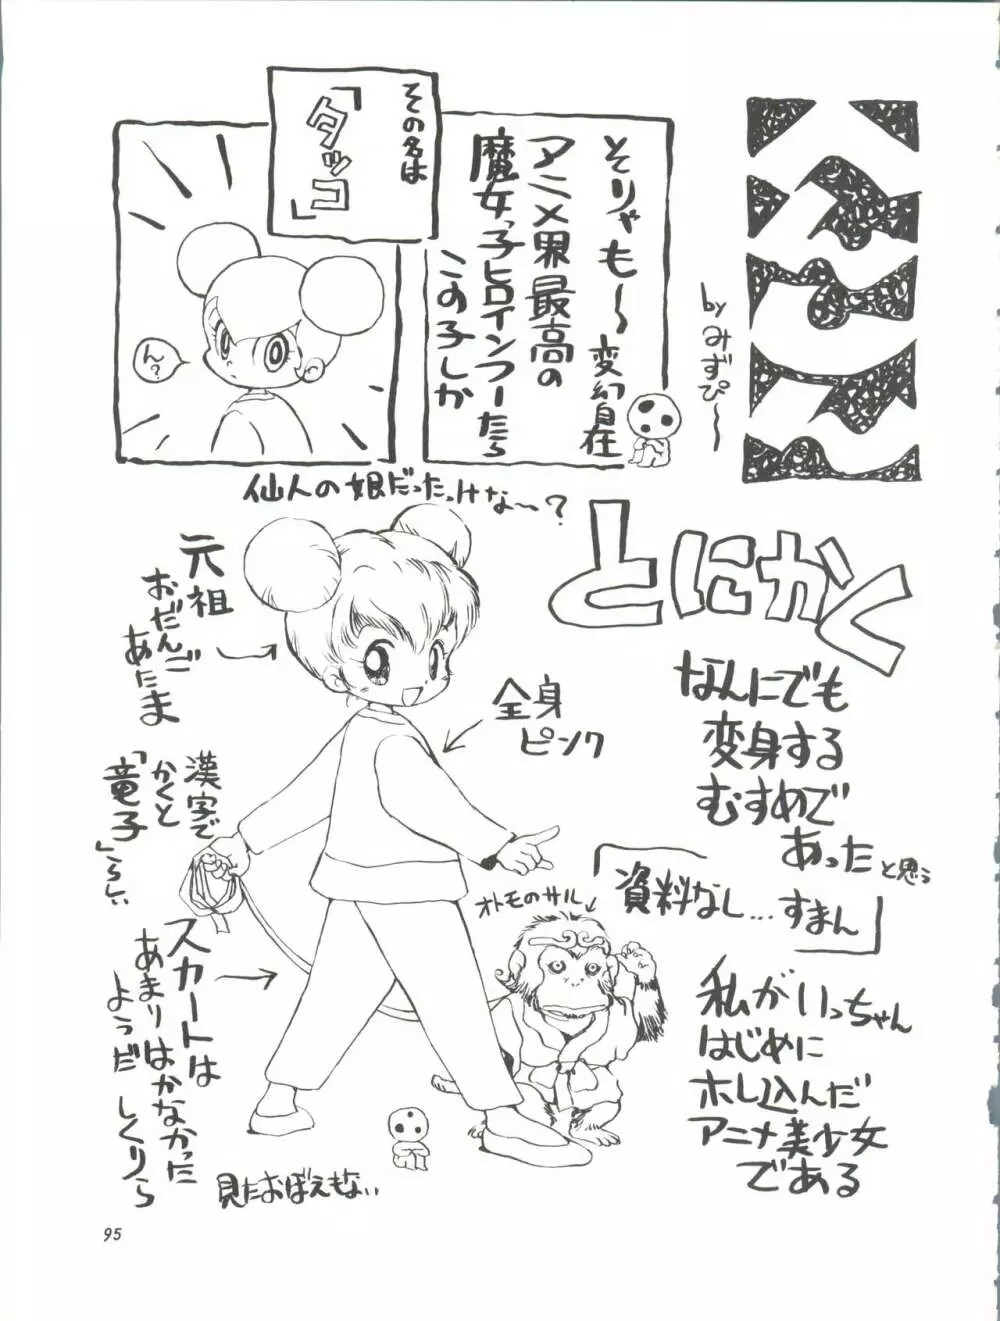 byみずぴ〜
そりゃも〜変幻自在
アニメ界最高の
魔女っ子ヒロインつーたら
この子しか
その名は
「タッコ」
ん?
仙人の娘だったっけな〜?
とにかく
なんにでも
変身する
むすめで
あったと思う
「資料なし...すまん」
私がいっちゃん
はじめに
ホレ込んだ
アニメ美少女
である
元祖
おだんご
あたま
全身
ピンク
漢字で
かくと
「竜子」らしい
オトモのサル
スカートは
あまりはかなかった
ようだ
見たおぼえもない
95